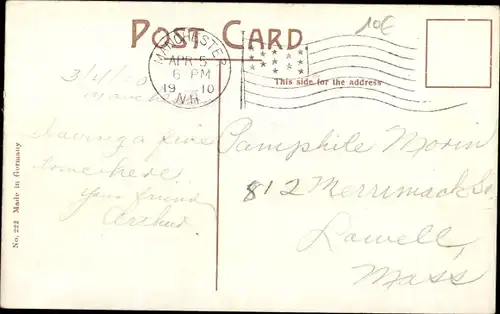 POST CARD
10€
MANCHESTER
APR 5
6 PM
19 10
N.H.
This side for the address
3/4/10
having a fine
time here
your friend
Arthur
Pamphile Morin
812 Merrimack St
Lowell
Mass
No. 222 Made in Germany